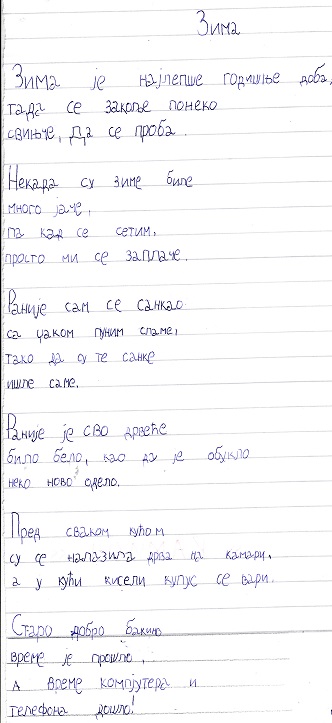 Зима
Зима је најлепше годишње доба,
тада се закоље понеко
свињче, да се проба.
Некада су зиме биле
много јаче,
па кад се сетим,
просто ми се заплаче.
Раније сам се санкао
са џаком пуним сламе,
тако да су те санке
ишле саме.
Раније је сво дрвеће
било бело, као да је обукло
неко ново одело.
Пред сваком кућом
су се налазила дрва на камари,
а у кући кисели купус се вари.
Старо добро бакино
време је прошло,
а време компјутера и
телефона дошло!